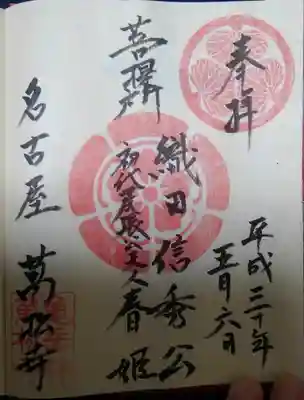 奉拝
平成三十年
五月六日
織田信秀公
初代尾張公夫人春姫
菩提所
名古屋 萬松寺